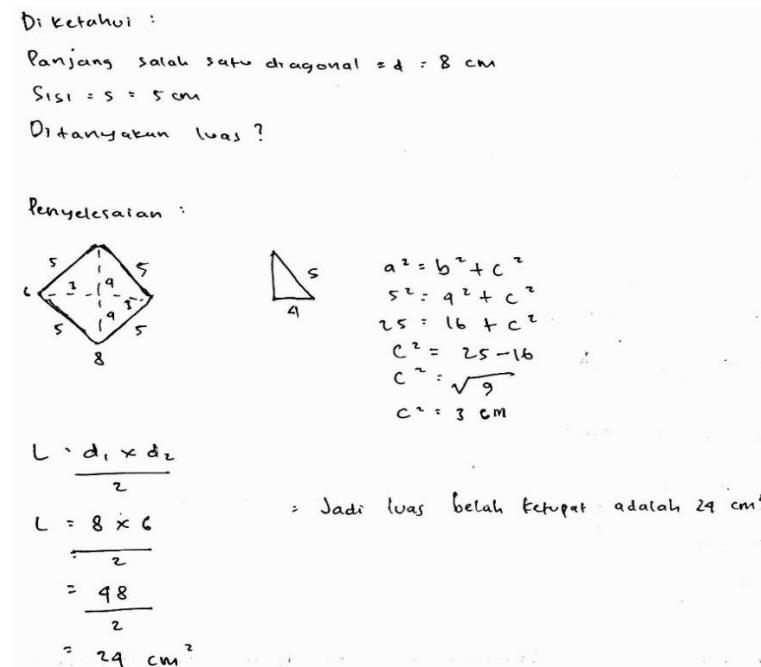 Diketahui :
Panjang salah satu diagonal = d = 8 cm
Sisi = s = 5 cm
Ditanyakan luas ?
Penyelesaian :
5
5
6
3
4
3
4
5
5
8
5
4
a² = b² + c²
5² = 4² + c²
25 = 16 + c²
c² = 25 - 16
c² = √9
c² = 3 cm
L = d₁ x d₂
2
L = 8 x 6
2
= 48
2
= 24 cm²
= Jadi luas belah ketupat adalah 24 cm²